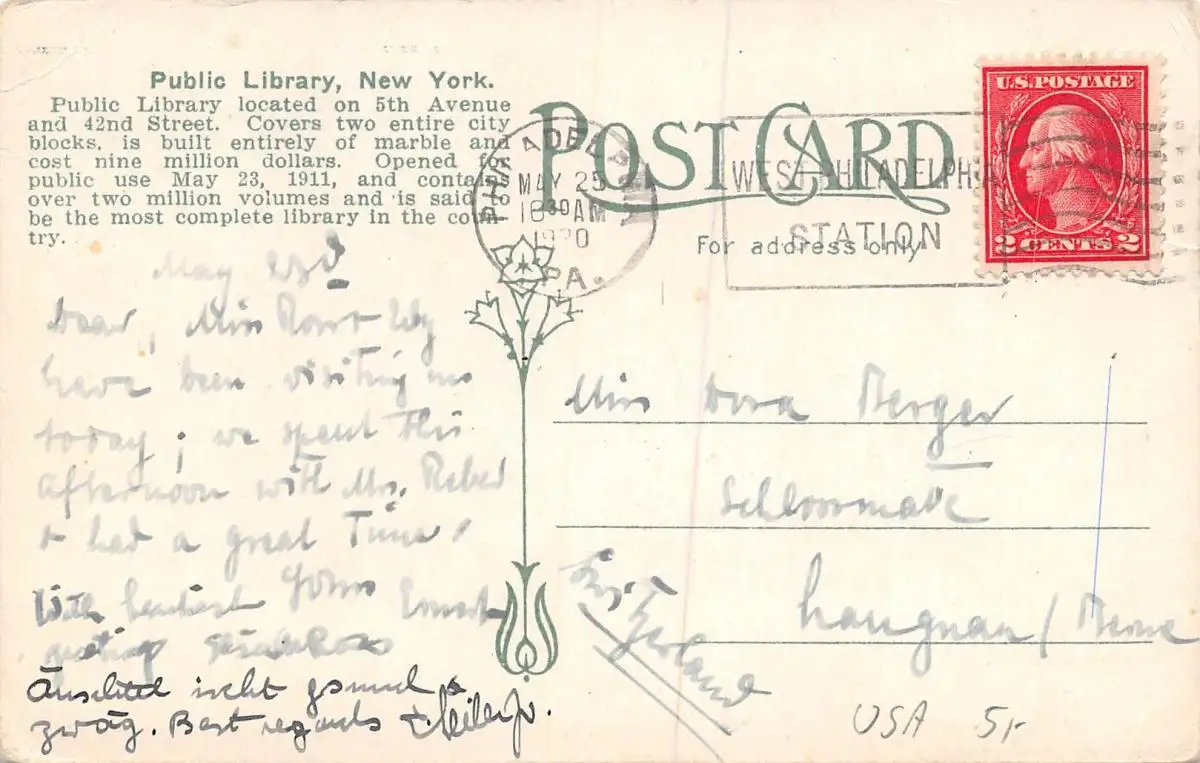 Public Library, New York.
Public Library located on 5th Avenue
and 42nd Street. Covers two entire city
blocks, is built entirely of marble and
cost nine million dollars. Opened for
public use May 23, 1911, and contains
over two million volumes and is said to
be the most complete library in the coun-
try.
POST CARD
For address only
PHILADELPHIA
MAY 25
1030 AM
1920
PA.
WEST PHILADELPHIA
STATION
U.S. POSTAGE
2 CENTS 2
May 23d
Dear, Miss
have been visiting us
today; we spent this
afternoon with Mrs. Reber
+ had a great Time!
With heartiest
greetings
gsund &
zwäg. Best regards
Miss Dora Berger
Langnau / Berne
Switzerland
USA 5,-